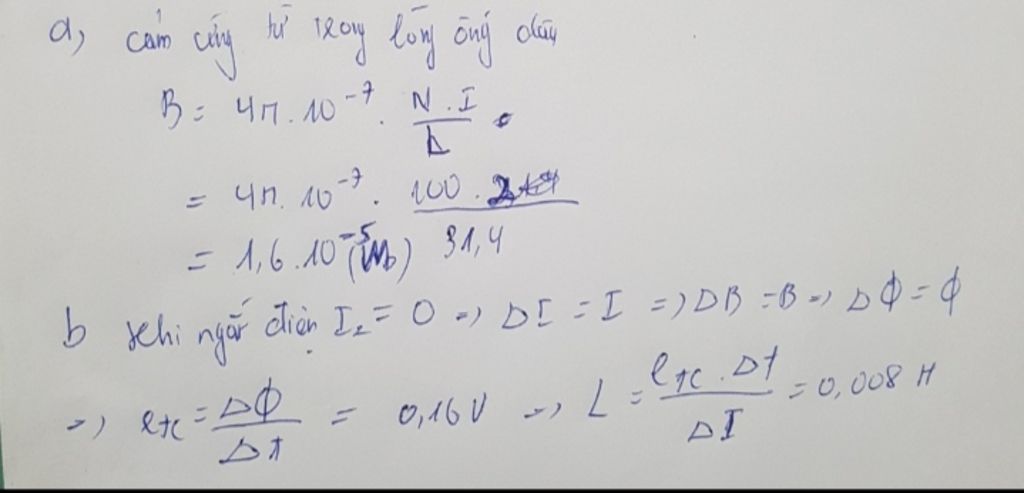 a, cảm ứng từ trong lòng ống dây
B = 4π.10⁻⁷. N.I / L
= 4π.10⁻⁷. 100.2 / 31,4
= 1,6.10⁻⁵ (Wb)
b khi ngắt điện I₂ = 0 => ΔI = I => ΔB = B => ΔΦ = Φ
=> etc = ΔΦ / Δt = 0,16V => L = etc.Δt / ΔI = 0,008 H